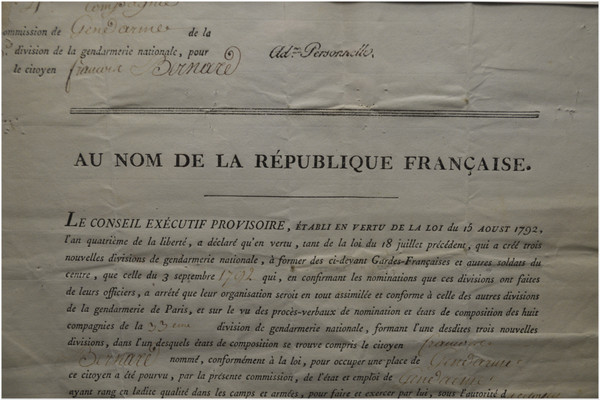 Compagnie
ommission de Gendarme de la
division de la gendarmerie nationale, pour
le citoyen françois Bernard
Ad.on Personnelle.
AU NOM DE LA RÉPUBLIQUE FRANÇAISE.
LE CONSEIL EXÉCUTIF PROVISOIRE, ÉTABLI EN VERTU DE LA LOI du 15 AOUST 1792,
l'an quatrième de la liberté, a déclaré qu'en vertu, tant de la loi du 18 juillet précédent, qui a créé trois
nouvelles divisions de gendarmerie nationale, à former des ci-devant Gardes-Françaises et autres soldats du
centre, que celle du 3 septembre 1792 qui, en confirmant les nominations que ces divisions ont faites
de leurs officiers, a arrêté que leur organisation seroit en tout assimilée et conforme à celle des autres divisions
de la gendarmerie de Paris, et sur le vu des procès-verbaux de nomination et états de composition des huit
compagnies de la 33eme division de gendarmerie nationale, formant l'une desdites trois nouvelles
divisions, dans l'un desquels états de composition se trouve compris le citoyen françois
Bernard nommé, conformément à la loi, pour occuper une place de Gendarme
ce citoyen a été pourvu, par la présente commission, de l'état et emploi de Gendarme
ayant rang en ladite qualité dans les camps et armées, pour faire et exercer par lui, sous l'autorité d